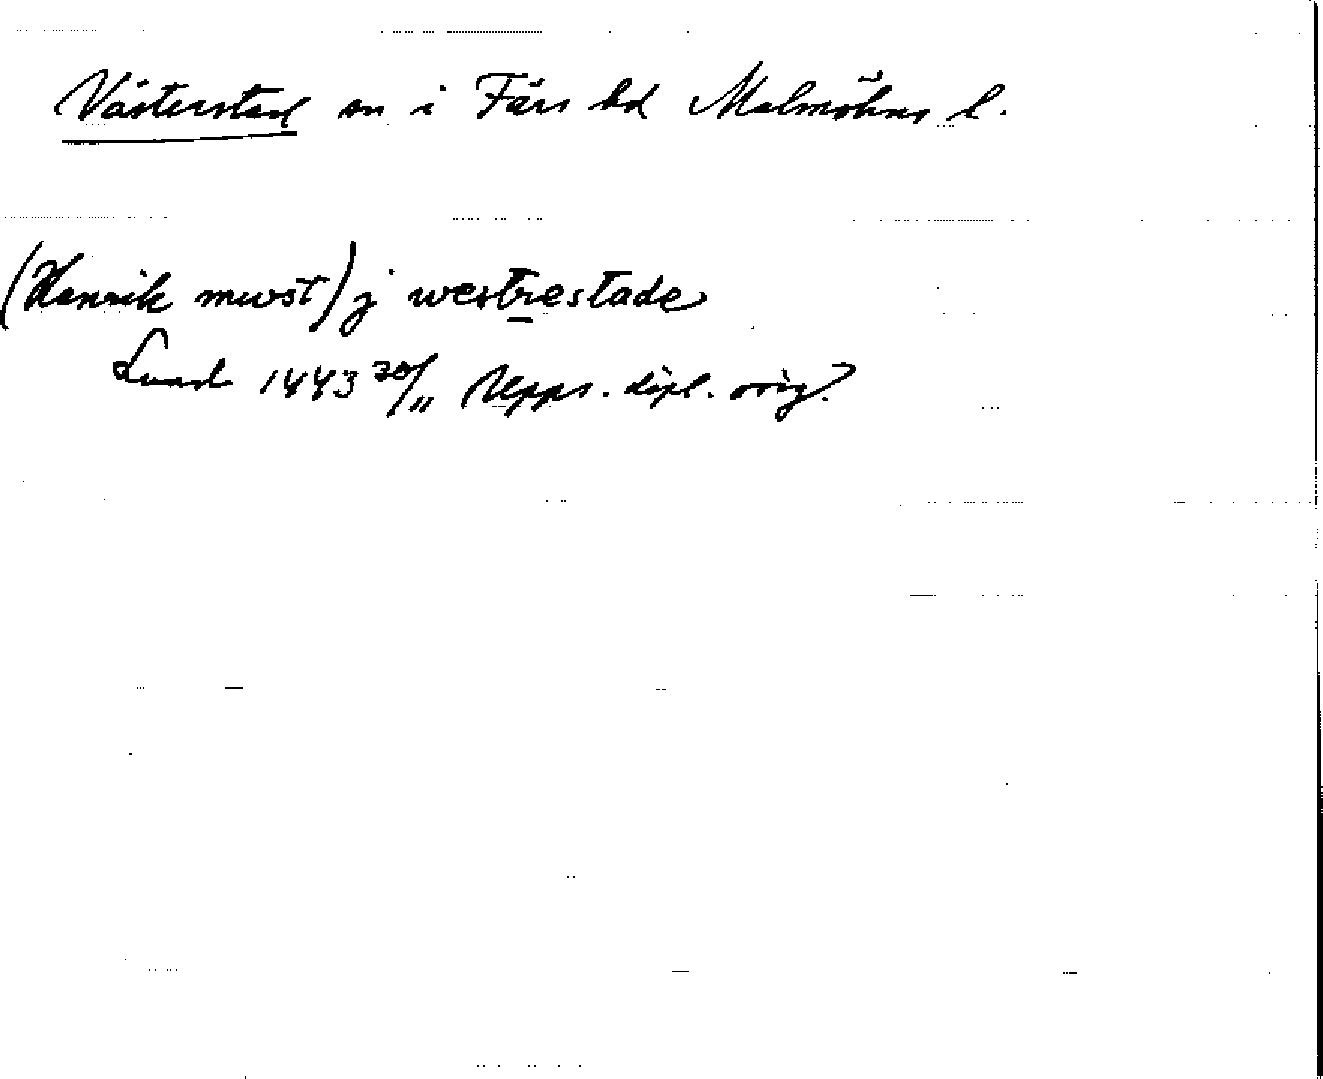 Västerstad sn i Färs hd Malmöhus l.
(Henrik mwst) j westrestade
Lund 1443 30/11 Upps. dipl. orig.